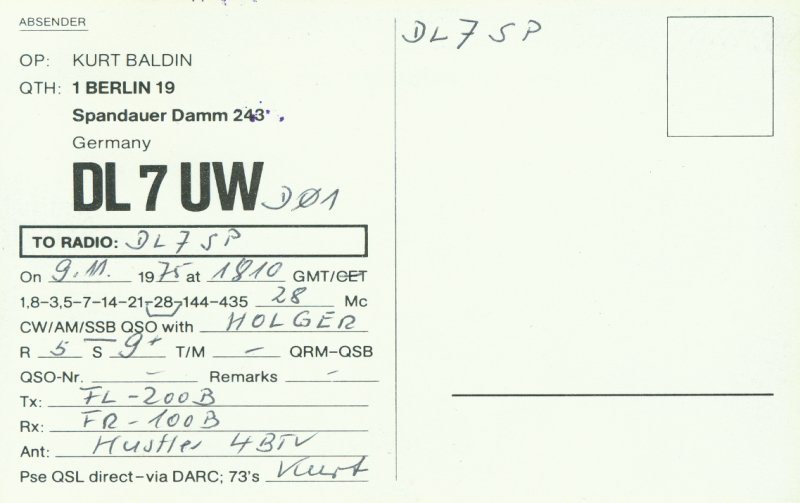 ABSENDER
OP: KURT BALDIN
QTH: 1 BERLIN 19
Spandauer Damm 243
Germany
DL 7 UW DØ1
TO RADIO: DL7SP
On 9.11. 1975 at 1810 GMT/CET
1,8-3,5-7-14-21-28-144-435 28 Mc
CW/AM/SSB QSO with HOLGER
R 5 S 9+ T/M — QRM-QSB
QSO-Nr. — Remarks —
Tx: FL-200B
Rx: FR-100B
Ant: Hustler 4BTV
Pse QSL direct-via DARC; 73's Kurt
DL7SP